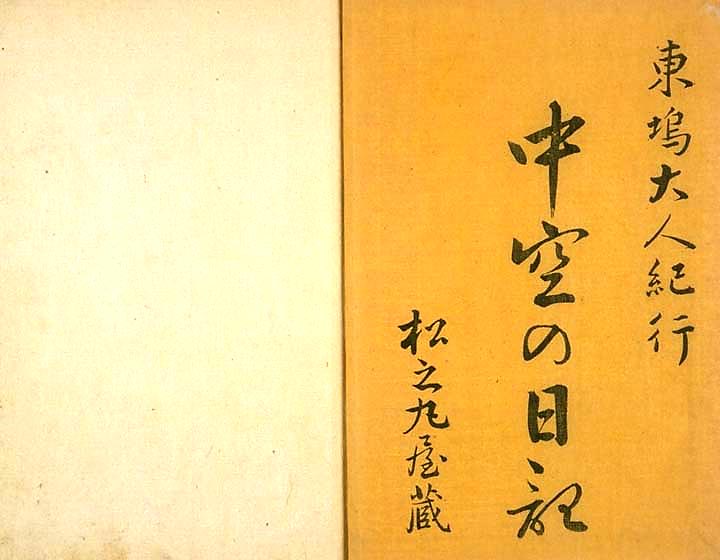 東塢大人紀行
中空の日記
松之屋蔵